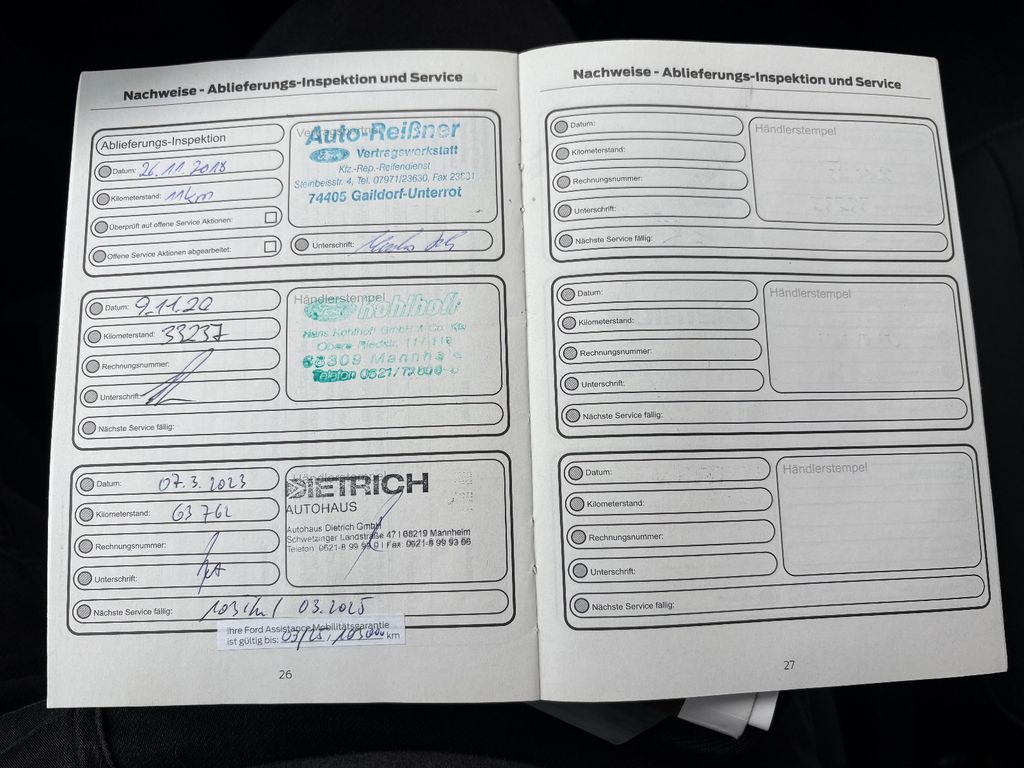 Nachweise - Ablieferungs-Inspektion und Service
Ablieferungs-Inspektion
Datum: 26.11.2018
Kilometerstand: 11km
Überprüft auf offene Service Aktionen:
Offene Service Aktionen abgearbeitet:
Auto-Reißner
Ford Vertragswerkstatt
Kfz.-Rep.-Reifendienst
Steinbeisstr. 4, Tel. 07971/23630, Fax
74405 Gaildorf-Unterrot
Unterschrift:
Datum: 9.11.20
Kilometerstand: 33237
Rechnungsnummer:
Unterschrift:
Nächste Service fällig:
Händlerstempel
Kohlhoff
Hans Kohlhoff GmbH & Co. KG
Obere Riedstr. 117-119
68309
Telefon 0621/
Datum: 07.3.2023
Kilometerstand:
Rechnungsnummer:
Unterschrift:
Nächste Service fällig: 03.2025
Händlerstempel
DIETRICH
AUTOHAUS
Autohaus Dietrich GmbH
Schwetzinger Landstraße 47 | 68219 Mannheim
Telefon: 0621-8 99 99 0 | Fax: 0621-8 99 93 66
Ihre Ford Assistance Mobilitätsgarantie
ist gültig bis: 03/25, 103000 km
26
Nachweise - Ablieferungs-Inspektion und Service
Datum:
Kilometerstand:
Rechnungsnummer:
Unterschrift:
Nächste Service fällig:
Händlerstempel
Datum:
Kilometerstand:
Rechnungsnummer:
Unterschrift:
Nächste Service fällig:
Händlerstempel
Datum:
Kilometerstand:
Rechnungsnummer:
Unterschrift:
Nächste Service fällig:
Händlerstempel
27